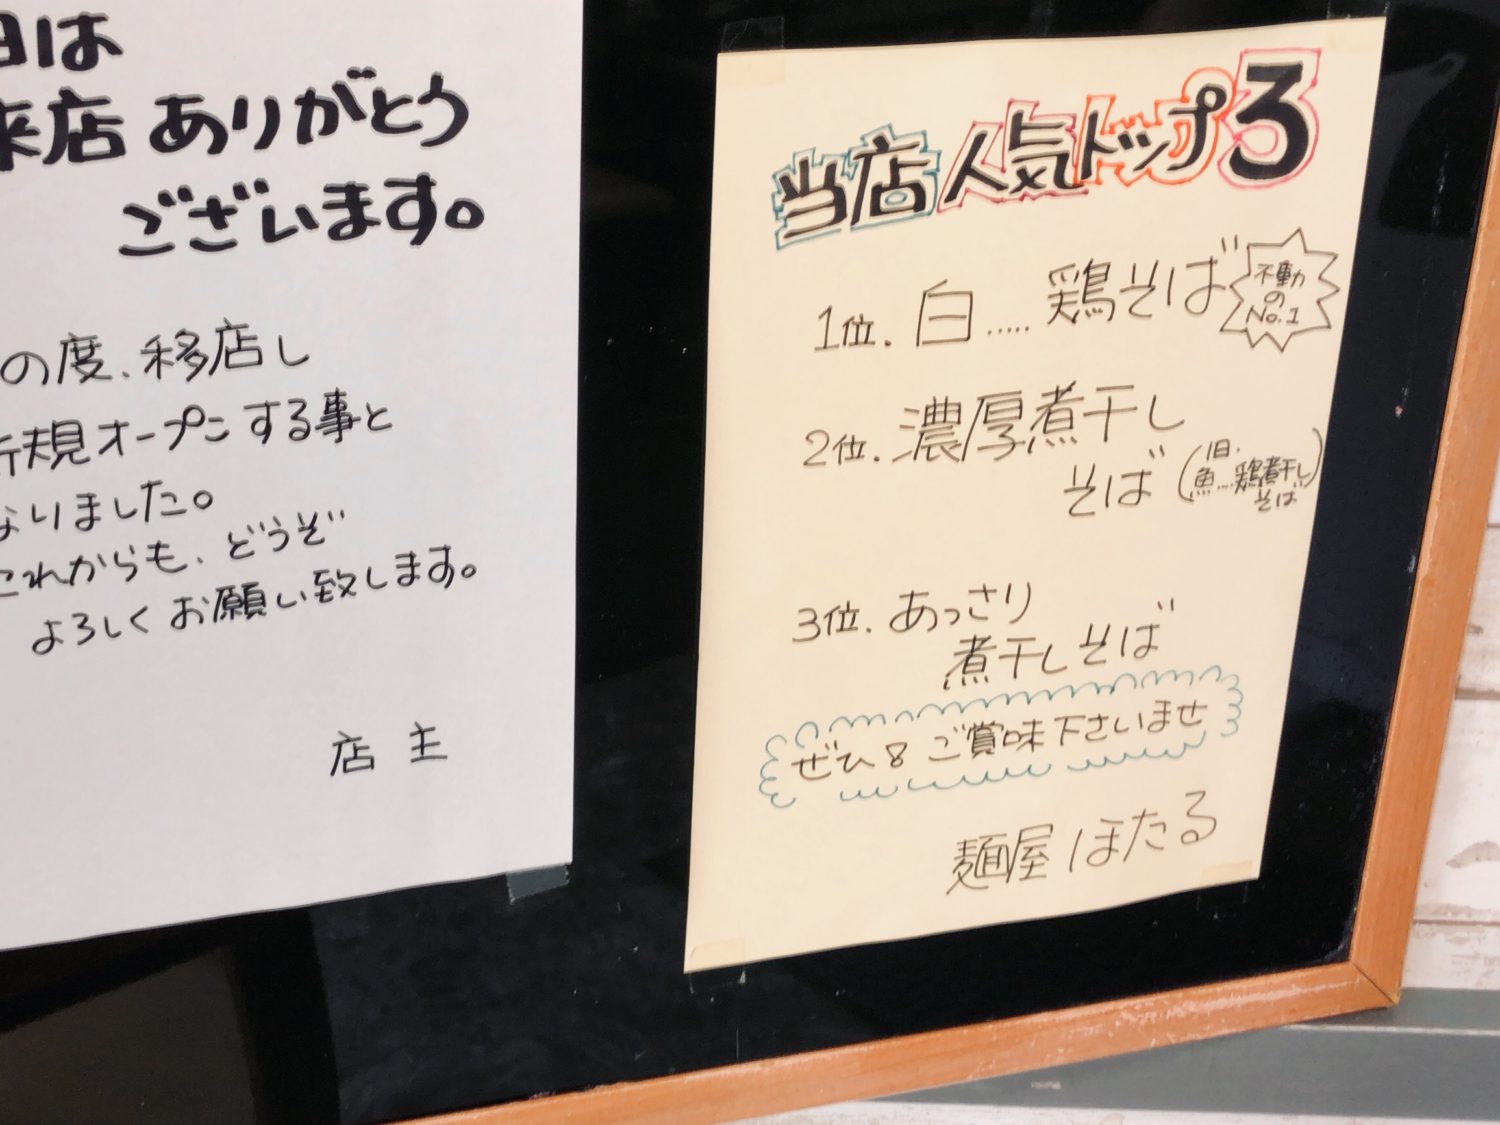 日は
来店 ありがとう
ございます。
の度、移店し
新規オープンする事と
なりました。
これからも、どうぞ
よろしくお願い致します。
店 主
当店人気トップ3
1位. 白.....鶏そば
不動
の
No.1
2位. 濃厚煮干し
そば
(旧.
魚....鶏煮干し
そば)
3位. あっさり
煮干しそば
ぜひ8ご賞味下さいませ
麺屋 ほたる